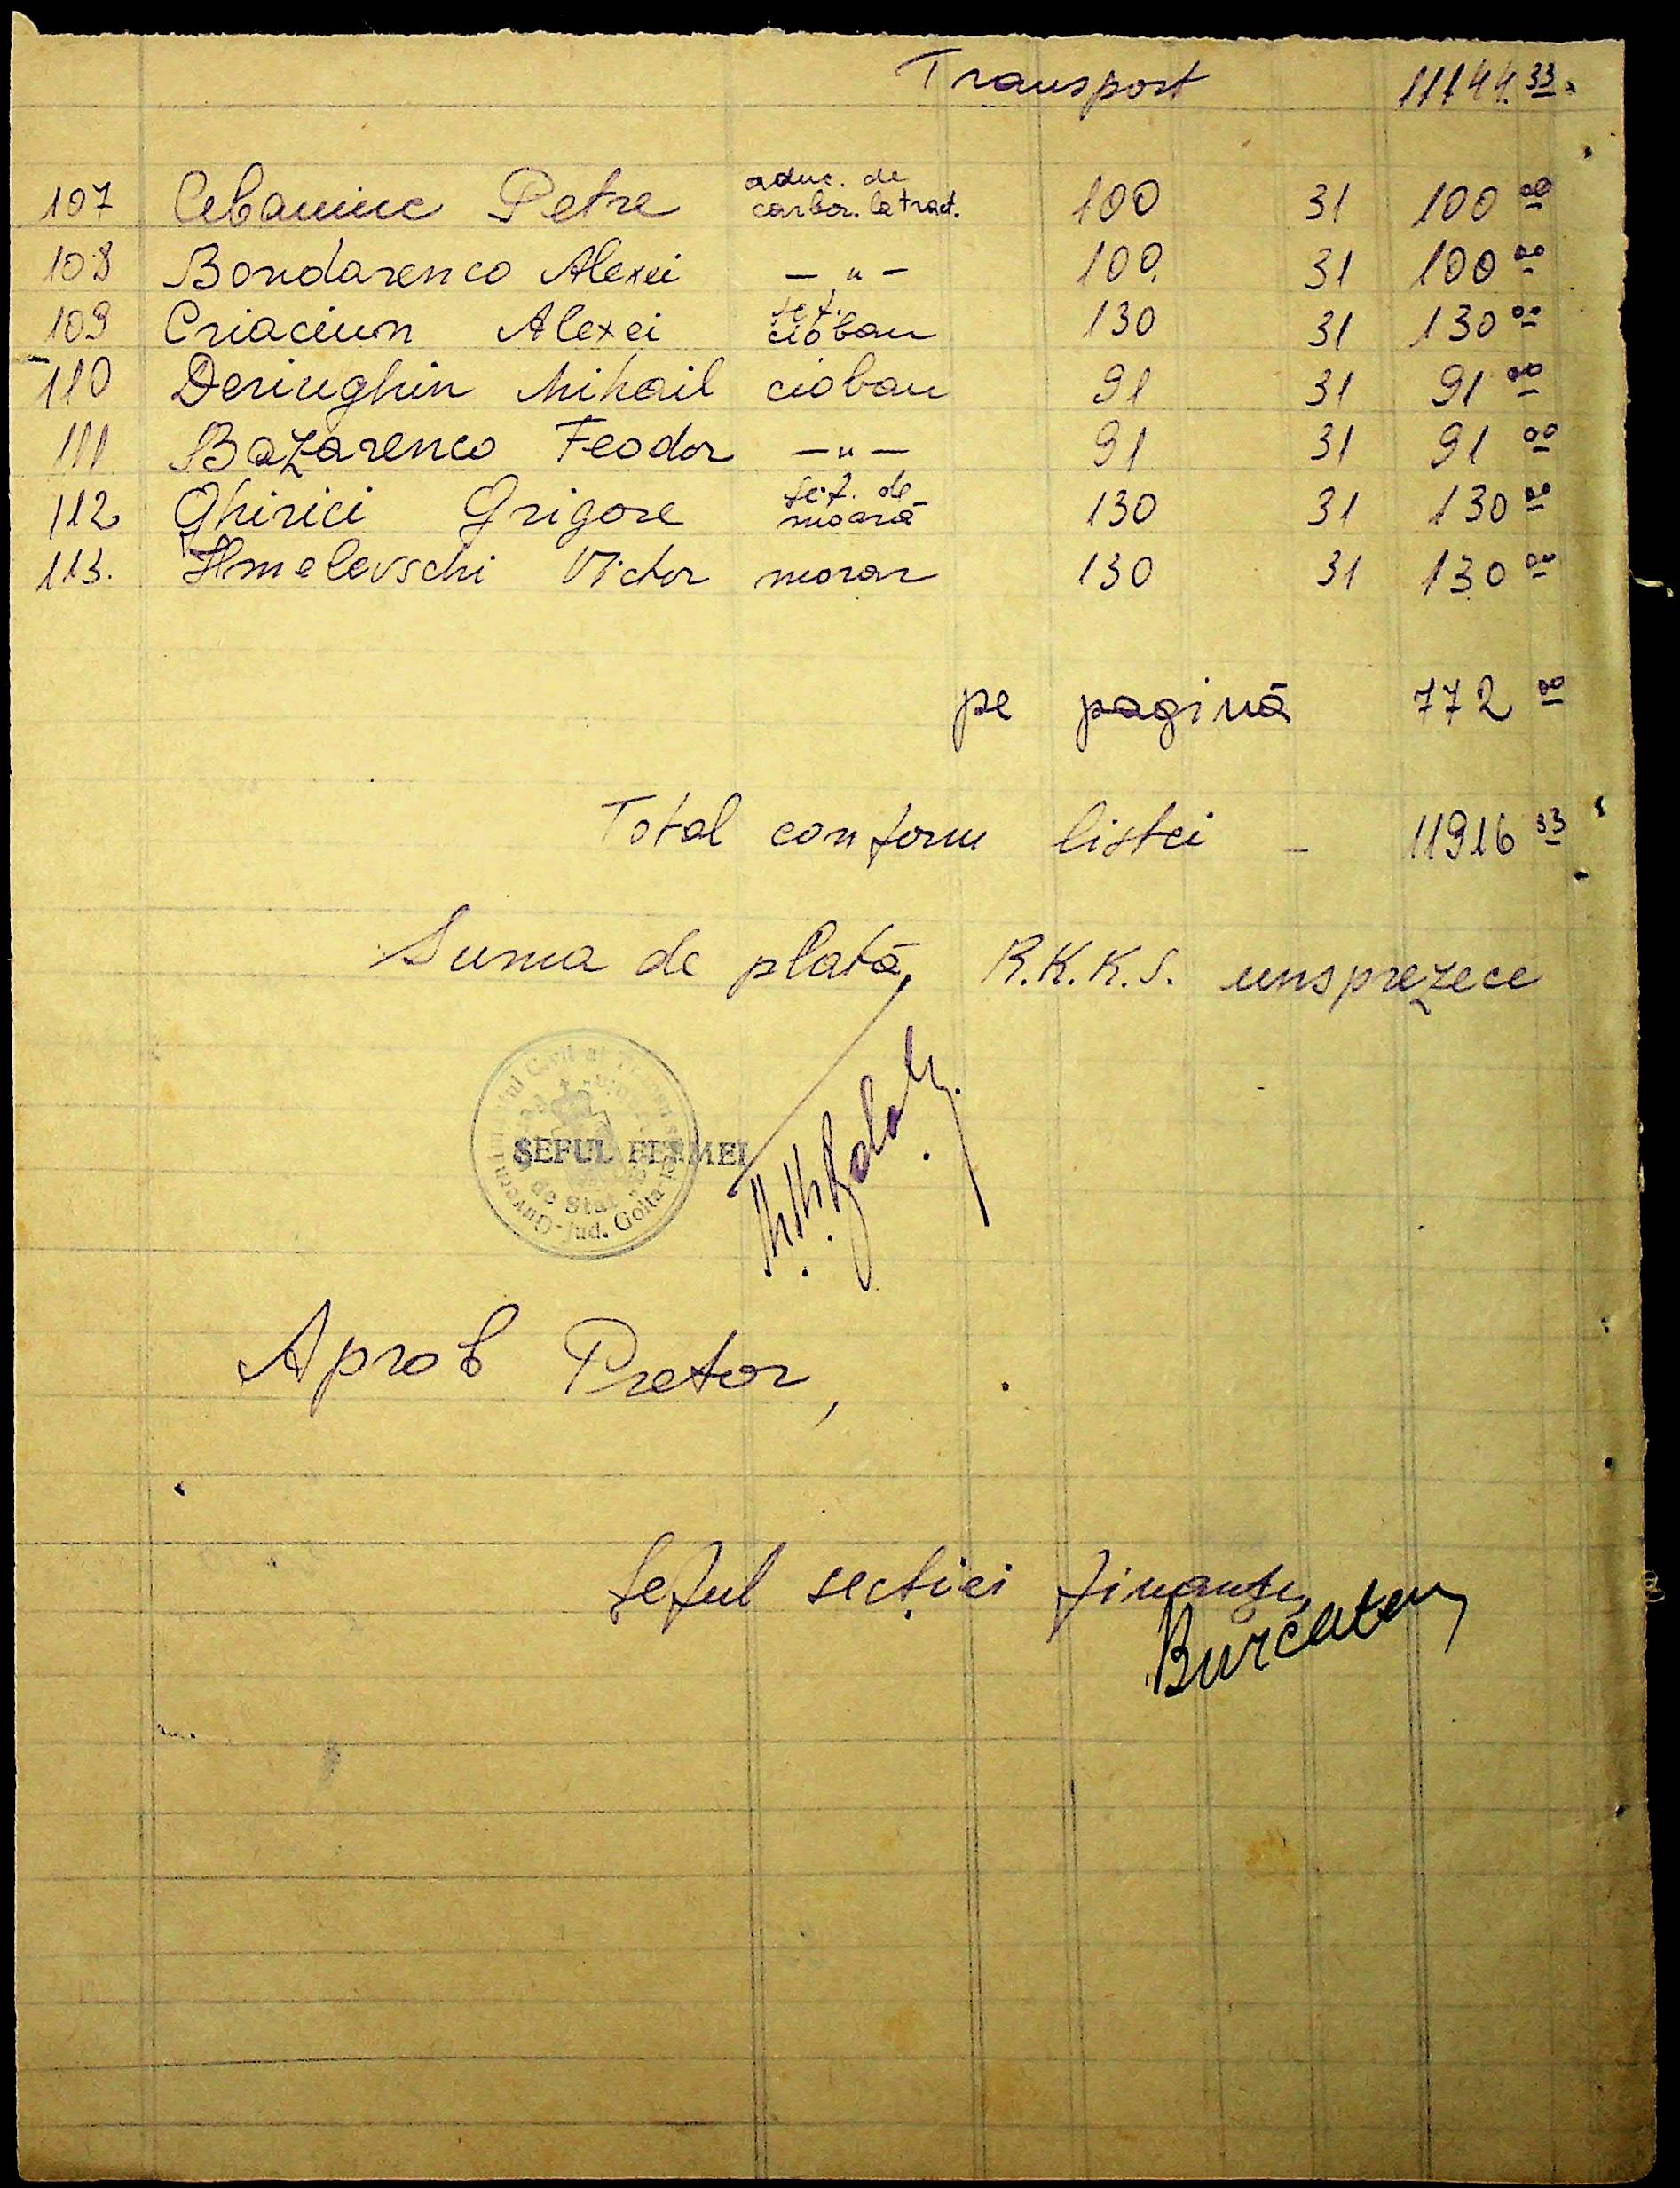 Transport 11144 33
107 Cebaniuc Petre aduc. de carbor. la tract. 100 31 100 00
108 Bondarenco Alexei — " — 100 31 100 00
109 Criaciun Alexei șef. cioban 130 31 130 00
110 Deriughin Mihail cioban 91 31 91 00
111 Bazarenco Feodor — " — 91 31 91 00
112 Ghirici Grigore șef. de moară 130 31 130 00
113. Hmelevschi Victor morar 130 31 130 00
pe pagină 772 00
Total conform listei – 11916 33
Suma de plată, R.K.K.S. unsprezece
ȘEFUL FERMEI
de Stat
Guvernământul Civil al
jud. Golta
Aprob Pretor,
Șeful secției finanțe,